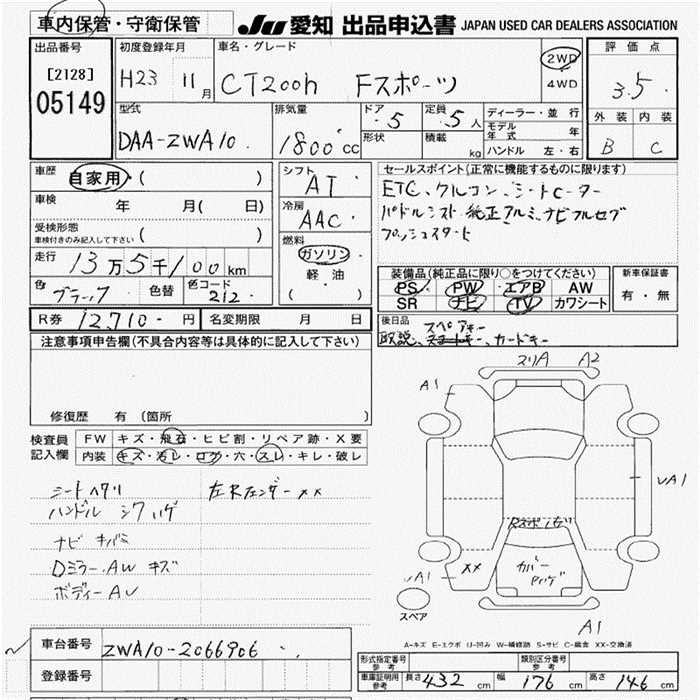 車内保管・守衛保管
JU 愛知 出品申込書 JAPAN USED CAR DEALERS ASSOCIATION
出品番号
[2128]
05149
初度登録年月
H23 11月
車名・グレード
CT200h Fスポーツ
2WD
4WD
評価点
3.5
外装 内装
B C
型式
DAA-ZWA10
排気量
1800cc
ドア
5
形状
定員
5人
積載
kg
ディーラー・並行
モデル年式 年
ハンドル 左・右
車歴
自家用・( )
車検 年 月( 日)
受検形態
車検付きのみ記入して下さい ( )
走行 13万5千100km
色 ブラック 色替 色コード 212
R券 12,710-円 名変期限 月 日
シフト
AT
冷房
AAC
燃料
ガソリン
軽・油
( )
セールスポイント(正常に機能するものに限ります)
ETC、クルコン、シートヒーター
パドルシフト 純正アルミ、ナビフルセグ
プッシュスタート
装備品(純正品に限り○をつけてください)
PS PW エアB AW
SR ナビ TV カワシート
新車保証書
有・無
後日品
スペアキー
取説、キー、カードキー
注意事項申告欄(不具合内容等は具体的に記入して下さい)
修復歴 有(箇所
検査員記入欄
FW キズ・飛石・ヒビ割・リペア跡・X要
内装 キズ・汚レ・コゲ・穴・スレ・キレ・破レ
シートヘタリ 左Rフェンダー××
ハンドル シワ ハゲ
ナビ キバミ
Dミラー.AW キズ
ボディーAU
スリA A2
A1
UA1
××
UA1
カバー
A1
スペア
A-キズ E-エクボ U-凹み W-補修跡 S-サビ C-腐食 XX-交換済
車台番号 ZWA10-2066906
登録番号
形式指定番号 参考
類別区分番号 参考
車庫証明用 参考 長さ 432 cm 幅 176 cm 高さ 146 cm